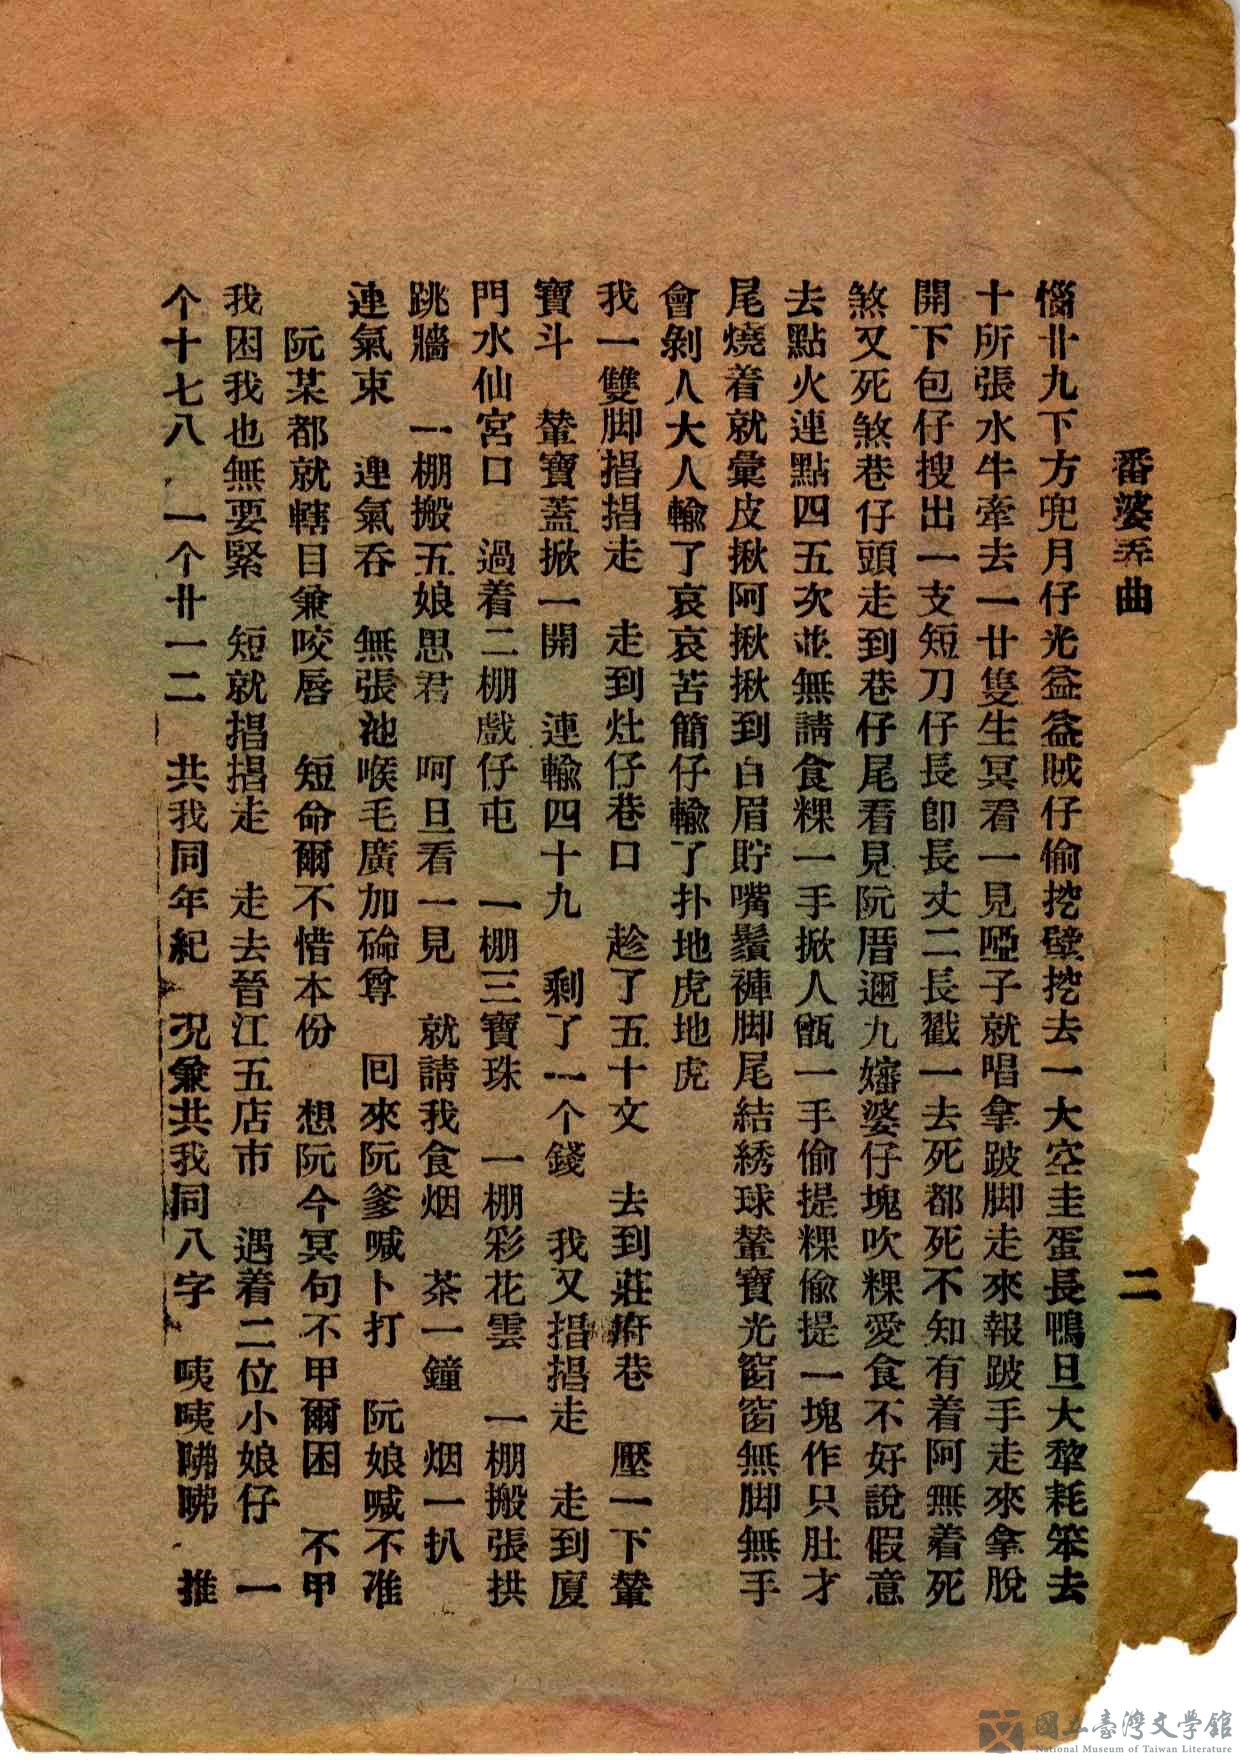 番婆弄曲　二
惱廿九下方兜月仔光益益賊仔偷挖壁挖去一大空圭蛋長鴨旦大犂耗笨去
十所張水牛牽去一廿隻生冥看一見啞子就唱拿跛脚走來報跛手走來拿脫
開下包仔搜出一支短刀仔長卽長丈二長戳一去死都死不知有着阿無着死
煞又死煞巷仔頭走到巷仔尾看見阮厝邇九嬸婆仔塊吹粿愛食不好說假意
去點火連點四五次並無請食粿一手掀人甑一手偷提粿偸提一塊作只肚才
尾燒着就彙皮揪阿揪揪到白眉貯嘴鬚褲脚尾結綉球輦寶光窗窗無脚無手
會剝人大人輸了哀哀苦簡仔輸了扑地虎地虎
我一雙脚捾捾走　走到灶仔巷口　趁了五十文　去到莊府巷　壓一下輦
寶斗　輦寶蓋掀一開　連輸四十九　剩了一个錢　我又捾捾走　走到廈
門水仙宮口　過着二棚戲仔屯　一棚三寶珠　一棚彩花雲　一棚搬張拱
跳牆　一棚搬五娘思君　呵旦看一見　就請我食烟　茶一鐘　烟一扒
連氣束　連氣吞　無張池喉毛廣加碖尊　回來阮爹喊卜打　阮娘喊不准
阮某都就轄目兼咬唇　短命爾不惜本份　想阮今冥句不甲爾困　不甲
我困我也無要緊　短就捾捾走　走去晉江五店市　遇着二位小娘仔　一
个十七八　一个廿一二　共我同年紀　況兼共我同八字　咦咦咈咈　推
國立臺灣文學館
National Museum of Taiwan Literature